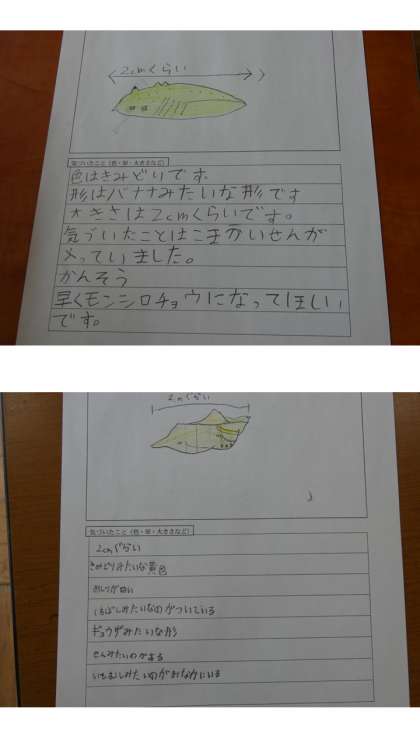 2cmくらい
気づいたこと(色・形・大きさなど)
色はきみどりです
形はバナナみたいな形です
大きさは2cmくらいです。
気づいたことはこまかいせんが
入っていました。
かんそう
早くモンシロチョウになってほしい
です。
2cmくらい
気づいたこと(色・形・大きさなど)
2cmぐらい
きみどりみたいな黄色
おしりが白い
くちばしみたいなのがついている
ギョウザみたいな形
せんみたいのがある
いもむしみたいのがおなかにいる